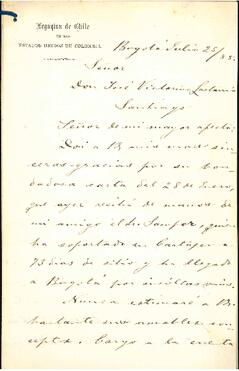 Legacion de Chile
EN LOS
ESTADOS UNIDOS DE COLOMBIA.
Bogotá Julio 25/85.
Señor
Don José Victorino Lastarria
Santiago
Señor de mi mayor afecto:
Doi a U. mis mas sin-
ceras gracias por su bon-
dadosa carta del 28 de Enero,
que ayer recibí de manos de
mi amigo el dr. Samper, quien
ha soportado en Cartagena
73 dias de sitio y ha llegado
a Bogotá por
Nunca estimaré a U.
bastante sus amables con-
ceptos. Cargo a la cuenta